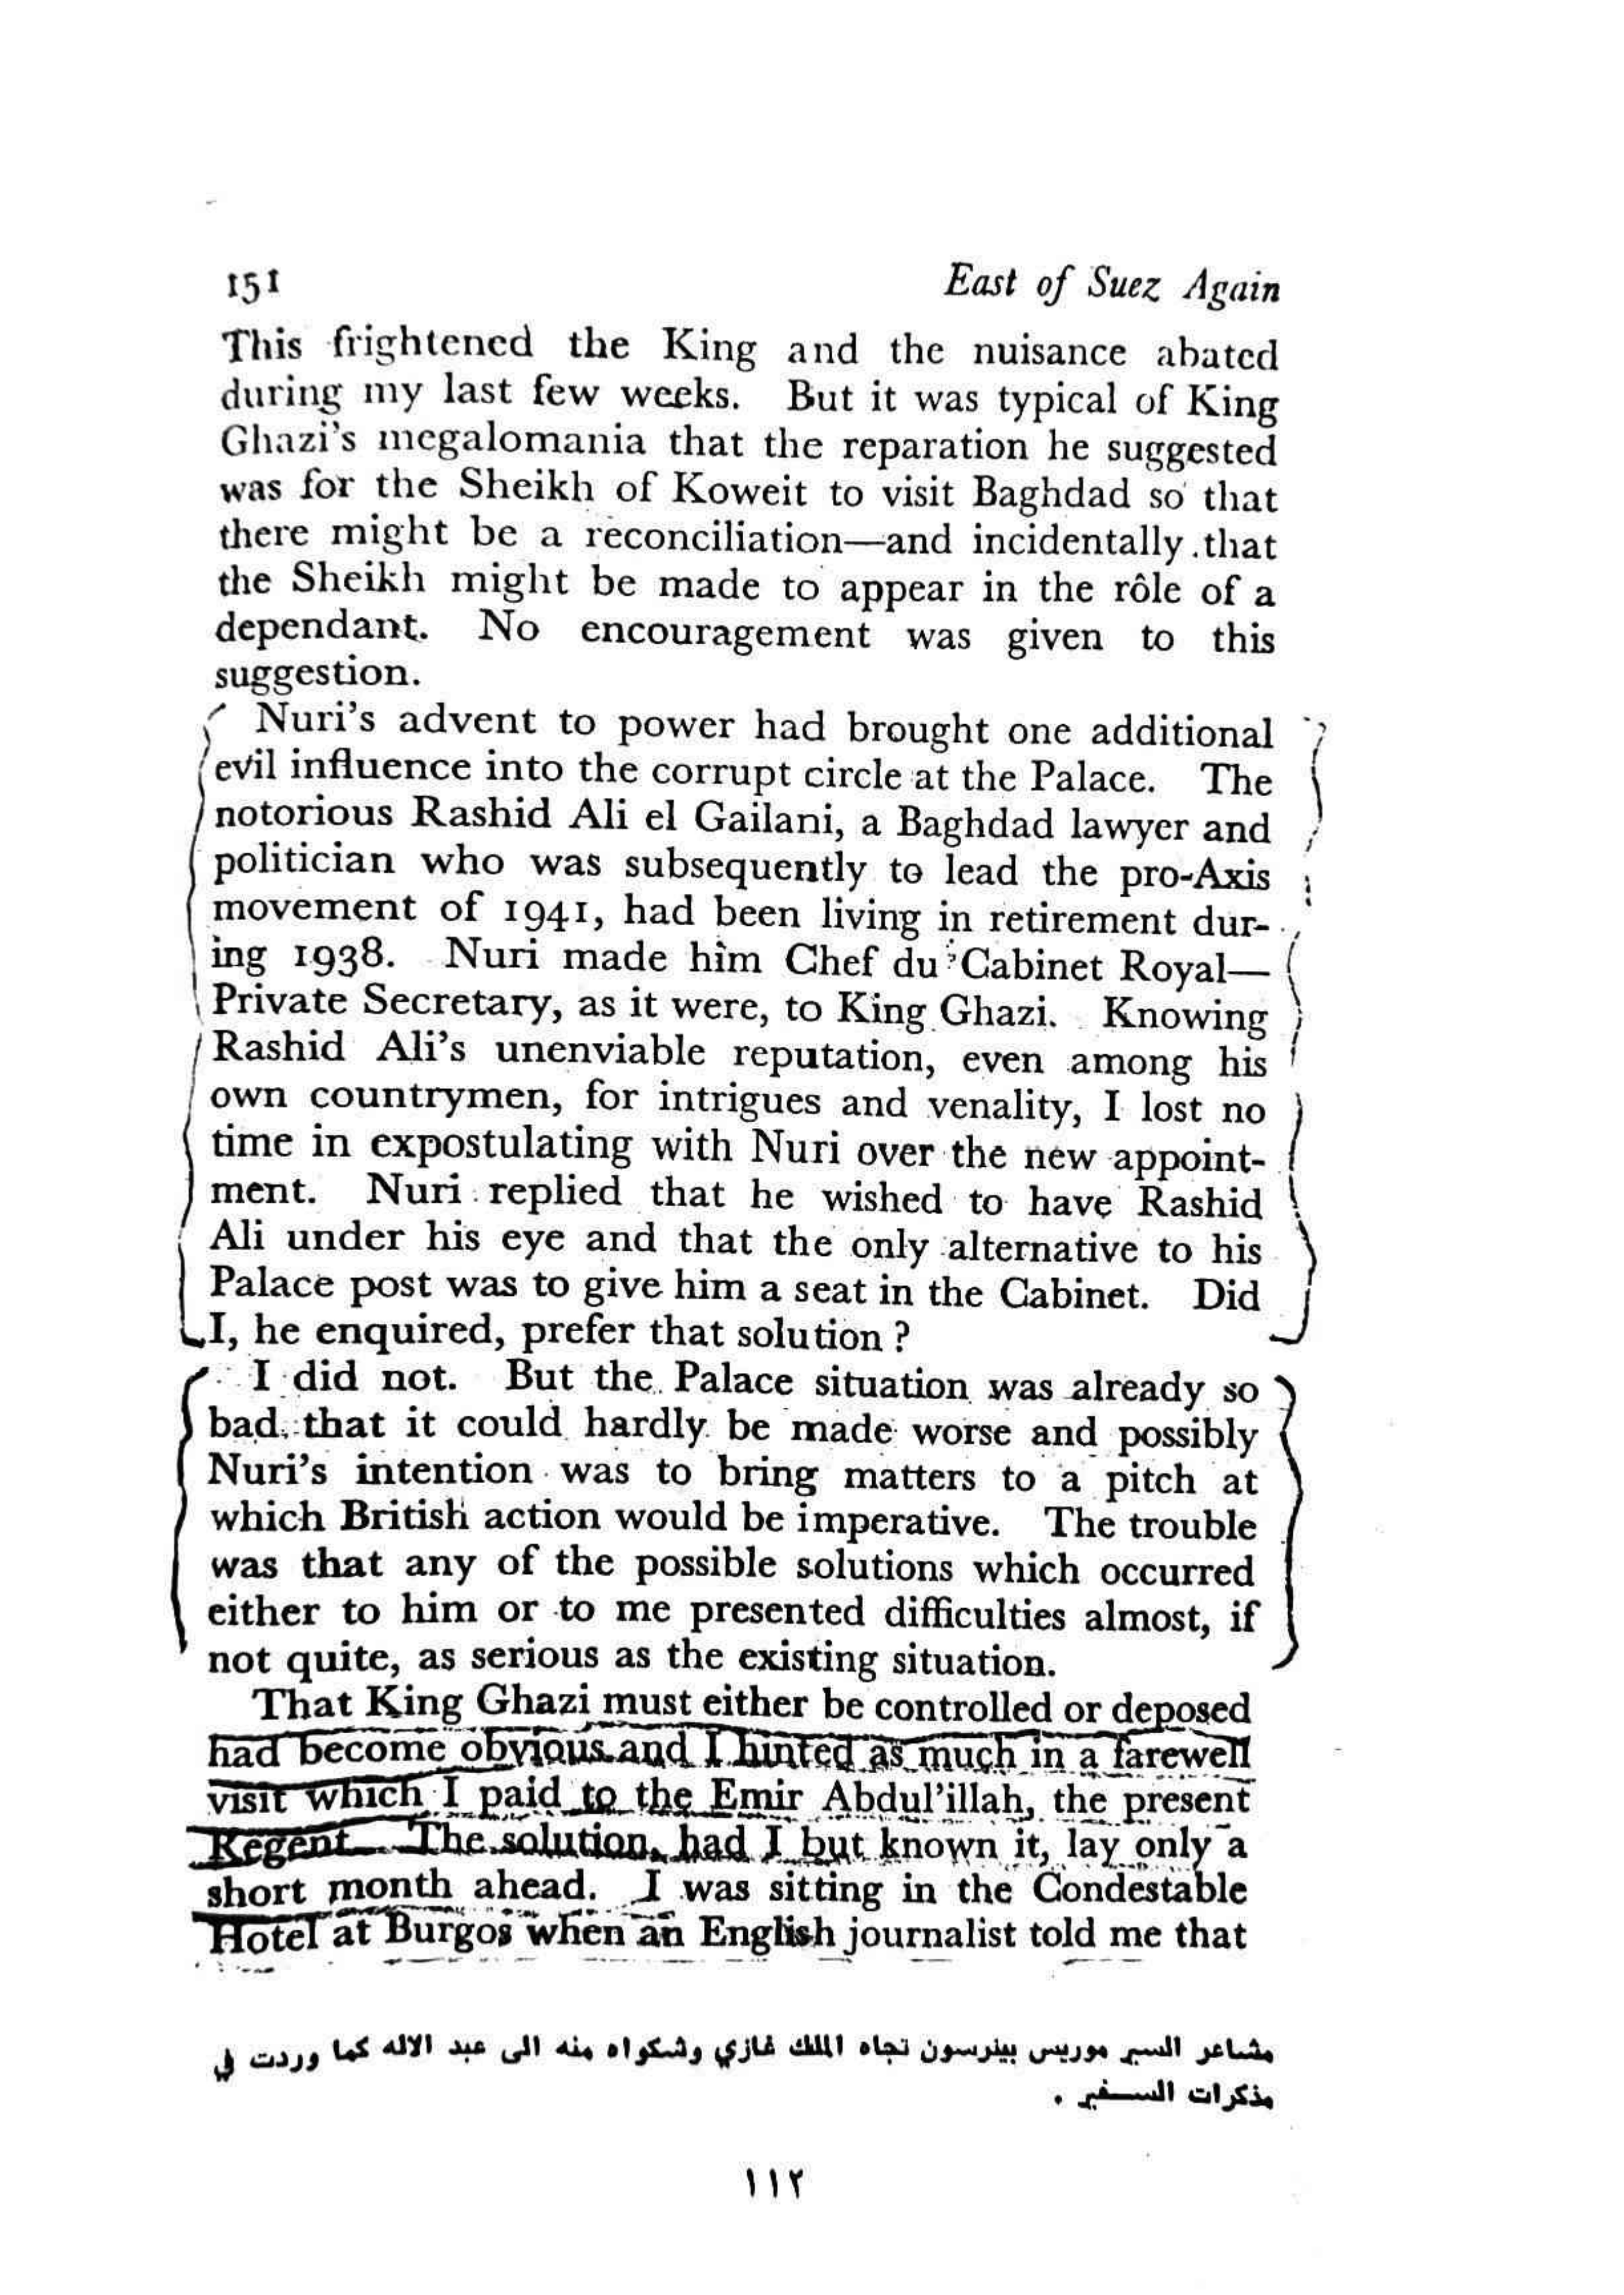 151 East of Suez Again
This frightened the King and the nuisance abated
during my last few weeks. But it was typical of King
Ghazi's megalomania that the reparation he suggested
was for the Sheikh of Koweit to visit Baghdad so that
there might be a reconciliation—and incidentally that
the Sheikh might be made to appear in the rôle of a
dependant. No encouragement was given to this
suggestion.
Nuri's advent to power had brought one additional
evil influence into the corrupt circle at the Palace. The
notorious Rashid Ali el Gailani, a Baghdad lawyer and
politician who was subsequently to lead the pro-Axis
movement of 1941, had been living in retirement dur-
ing 1938. Nuri made him Chef du Cabinet Royal—
Private Secretary, as it were, to King Ghazi. Knowing
Rashid Ali's unenviable reputation, even among his
own countrymen, for intrigues and venality, I lost no
time in expostulating with Nuri over the new appoint-
ment. Nuri replied that he wished to have Rashid
Ali under his eye and that the only alternative to his
Palace post was to give him a seat in the Cabinet. Did
I, he enquired, prefer that solution?
I did not. But the Palace situation was already so
bad that it could hardly be made worse and possibly
Nuri's intention was to bring matters to a pitch at
which British action would be imperative. The trouble
was that any of the possible solutions which occurred
either to him or to me presented difficulties almost, if
not quite, as serious as the existing situation.
That King Ghazi must either be controlled or deposed
had become obvious and I hinted as much in a farewell
visit which I paid to the Emir Abdul'illah, the present
Regent. The solution, had I but known it, lay only a
short month ahead. I was sitting in the Condestable
Hotel at Burgos when an English journalist told me that
مشاعر السير موريس بيترسون تجاه الملك غازي وشكواه منه الى عبد الاله كما وردت في
مذكرات السفير .
١١٢